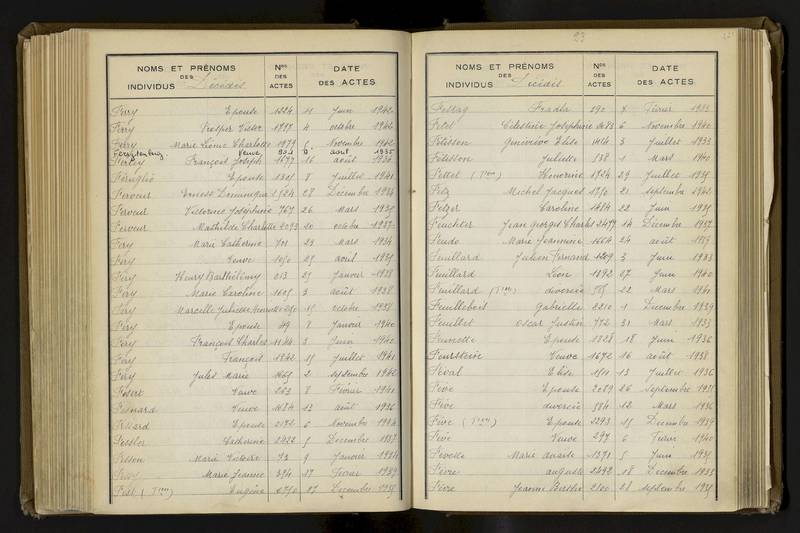 NOMS ET PRÉNOMS DES INDIVIDUS Décédés Nos DES ACTES DATE DES ACTES
Ferry Epouse 1224 11 Juin 1942
Ferry Prosper Victor 1777 4 octobre 1942
Ferry Marie Léonie Charlotte 1979 6 Novembre 1942
Veuve 904 9 août 1935
François Joseph 1677 16 août 1936
Epouse 1321 8 Juillet 1941
Ferveur Ernest Dominique 1524 28 Décembre 1934
Ferveur Victorine Joséphine 767 26 Mars 1935
Ferveur Mathilde Charlotte 2093 20 octobre 1937
Féry Marie Catherine 701 29 Mars 1934
Féry Veuve 1050 25 avril 1935
Féry Henry Barthélémy 213 25 Janvier 1938
Féry Marie Caroline 1605 3 août 1938
Féry Marcelle Juliette octobre 1938
Féry Epouse 49 8 Janvier 1940
Féry François Charles 1144 3 Juin 1940
Féry François 1242 15 Juillet 1941
Féry Jules Marie 1665 2 septembre 1942
Veuve 263 8 Février 1941
Fesnard Veuve 1684 13 août 1936
Epouse 2171 6 Novembre 1934
Fessler Catherine 2422 5 Décembre 1937
Fesson Marie Victoire 73 9 Janvier 1934
Marie Jeanne 394 17 Février 1939
Eugène 2750 27 Décembre 1935
23
NOMS ET PRÉNOMS DES INDIVIDUS Décédés Nos DES ACTES DATE DES ACTES
Fettag 290 4 Février 1935
Fetel Célestine Joséphine 2683 6 Novembre 1940
Fétisson Geneviève Elise 1414 3 Juillet 1933
Fétisson Juliette 138 1 Mars 1940
Fettel Honorine 1754 29 Juillet 1935
Fetz Michel Jacques 1750 21 septembre 1942
Fetzer Caroline 1414 22 Juin 1935
Feuchter Jean Georges Charles 2477 14 Décembre 1937
Feudo Marie Jeannine 1664 24 août 1939
Feuillard Julien Fernand 1209 3 Juin 1933
Feuillard Léon 1092 27 Juin 1940
Feuillard divorcée 505 22 Mars 1941
Feuillebois Gabrielle 2210 1 Décembre 1939
Feuillet Oscar Justin 772 31 Mars 1933
Epouse 1328 18 Juin 1936
Feurstein Veuve 1672 16 août 1938
Féval Elise 1511 13 Juillet 1936
Fève Epouse 2089 26 septembre 1935
Fève divorcée 584 12 Mars 1936
Fève Epouse 2293 15 Décembre 1939
Fève Veuve 297 6 Février 1940
Marie 1371 5 Juin 1935
Fèvre auguste 2492 18 Décembre 1933
Fèvre Jeanne Berthe 2100 28 septembre 1935